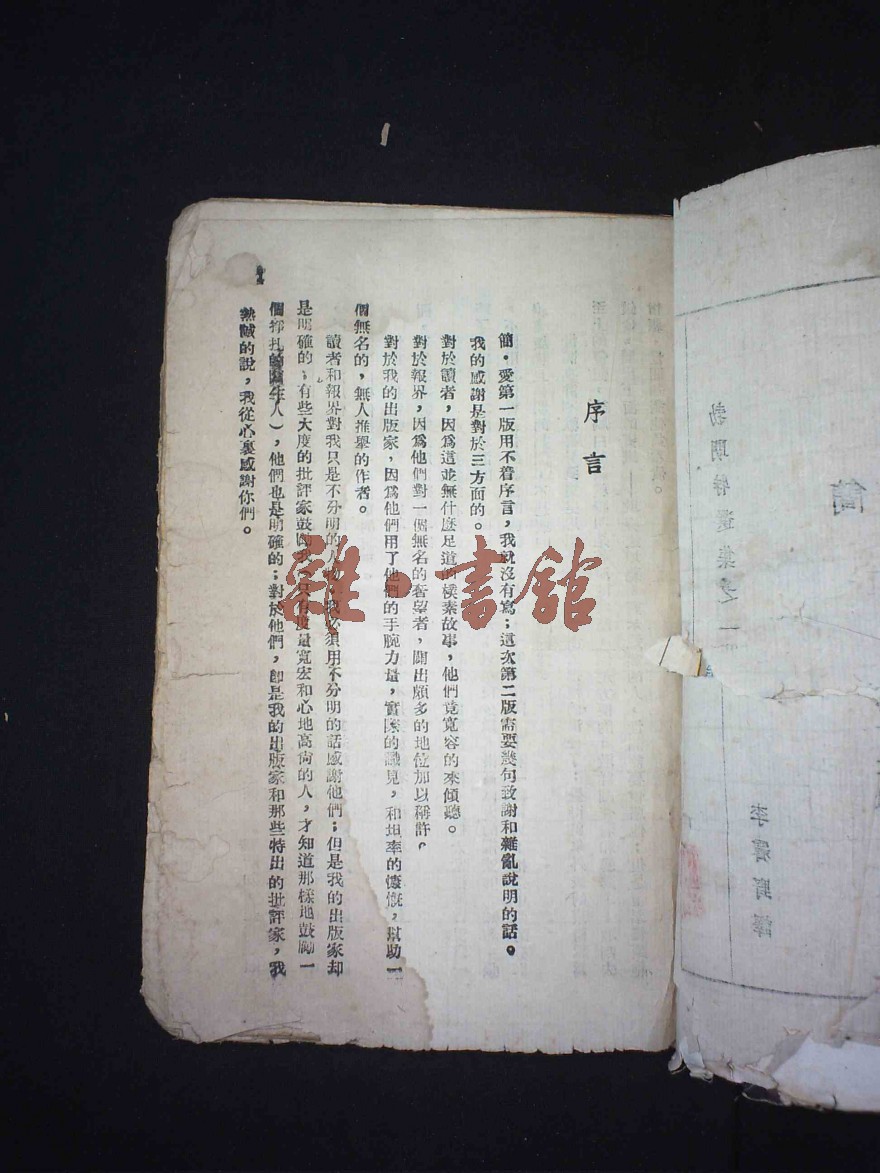 序言
簡·愛第一版用不着序言，我就沒有寫；這次第二版需要幾句致謝和雜亂說明的話。
我的感謝是對於三方面的。
對於讀者，因爲這並無什麼足道的樸素故事，他們竟寬容的來傾聽。
對於報界，因爲他們對一個無名的奢望者，闢出頗多的地位加以稱許。
對於我的出版家，因爲他們用了他們的手腕力量，實際的識見，和坦率的慷慨，幫助一
個無名的，無人推舉的作者。
讀者和報界對我只是不分明的人物，我必須用不分明的話感謝他們；但是我的出版家却
是明確的；有些大度的批評家鼓勵我，只有度量寬宏和心地高尚的人，才知道那樣地鼓勵一
個掙扎的陌生人），他們也是明確的；對於他們，卽是我的出版家和那些特出的批評家，我
熱誠的說，我從心裏感謝你們。
雜·書館
簡
勃朗特選集之一
李霽野譯